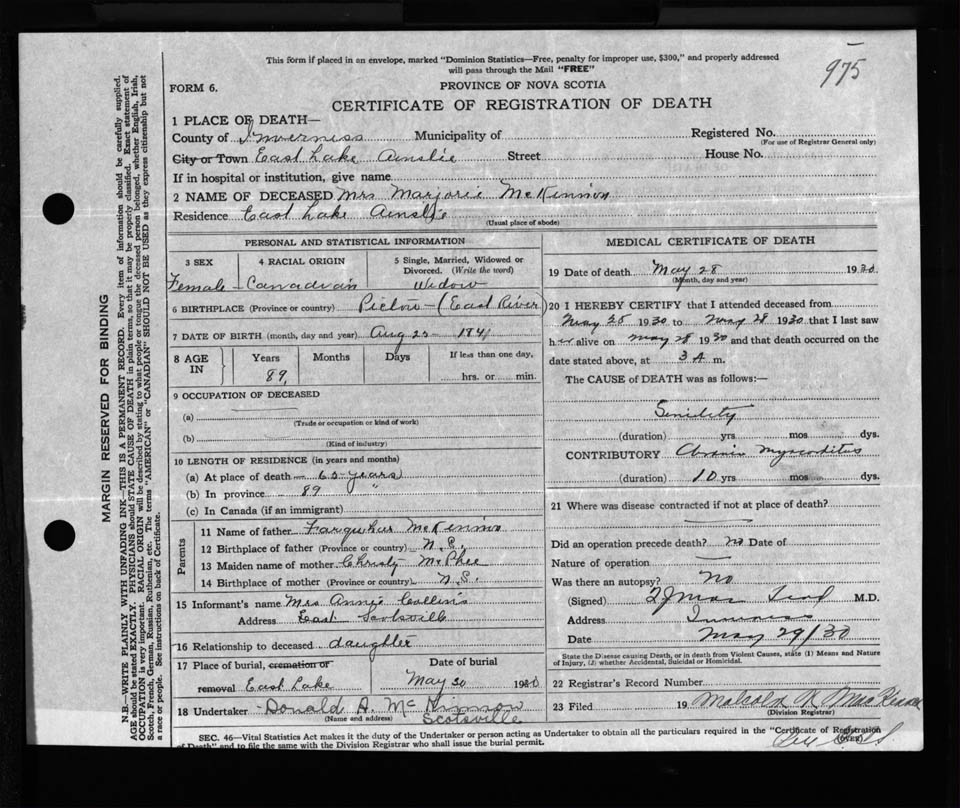 This form if placed in an envelope, marked "Dominion Statistics—Free, penalty for improper use, $300," and properly addressed
will pass through the Mail "FREE"
975
FORM 6.
PROVINCE OF NOVA SCOTIA
CERTIFICATE OF REGISTRATION OF DEATH
MARGIN RESERVED FOR BINDING
N.B.—WRITE PLAINLY WITH UNFADING INK—THIS IS A PERMANENT RECORD. Every item of information should be carefully supplied.
AGE should be stated EXACTLY. PHYSICIANS should STATE CAUSE OF DEATH in plain terms, so that it may be properly classified. Exact statement of
OCCUPATION is very important. RACIAL ORIGIN will be described by stating to what people or tongue the deceased person belonged, whether English, Irish,
Scotch, French, German, Russian, Ruthenian, etc. The terms "AMERICAN" or "CANADIAN" SHOULD NOT BE USED as they express citizenship but not
a race or people. See instructions on back of Certificate.
1 PLACE OF DEATH—
County of Inverness Municipality of Registered No.
(For use of Registrar General only)
City or Town East Lake Ainslie Street House No.
If in hospital or institution, give name
2 NAME OF DECEASED Mrs Marjorie McKinnon
Residence East Lake Ainslie
(Usual place of abode)
PERSONAL AND STATISTICAL INFORMATION
3 SEX 4 RACIAL ORIGIN 5 Single, Married, Widowed or
Divorced. (Write the word)
Female - Canadian Widow
6 BIRTHPLACE (Province or country) Pictou - (East River)
7 DATE OF BIRTH (month, day and year) Aug 25 - 1841
8 AGE IN Years Months Days If less than one day,
89 hrs. or min.
9 OCCUPATION OF DECEASED
(a)
(Trade or occupation or kind of work)
(b)
(Kind of industry)
10 LENGTH OF RESIDENCE (in years and months)
(a) At place of death 65 years
(b) In province 89 "
(c) In Canada (if an immigrant)
Parents
11 Name of father Farquhar McKinnon
12 Birthplace of father (Province or country) N.S.
13 Maiden name of mother Christy McPhee
14 Birthplace of mother (Province or country) N.S.
15 Informant's name Mrs Annie Collins
Address East Scotsville
16 Relationship to deceased daughter
17 Place of burial, cremation or Date of burial
removal East Lake May 30 1930
18 Undertaker Donald A. McKinnon
(Name and address) Scotsville
MEDICAL CERTIFICATE OF DEATH
19 Date of death May 28 1930
(Month, day and year)
20 I HEREBY CERTIFY that I attended deceased from
May 25 1930 to May 28 1930 that I last saw
her alive on May 28 1930 and that death occurred on the
date stated above, at 3 A m.
The CAUSE of DEATH was as follows:—
Senility
(duration) yrs mos dys.
CONTRIBUTORY Chronic Myocarditis
(duration) 10 yrs mos dys.
21 Where was disease contracted if not at place of death?
Did an operation precede death? no Date of
Nature of operation
Was there an autopsy? No
(Signed) M.D.
Address Inverness
Date May 29/30
State the Disease causing Death, or in death from Violent Causes, state (1) Means and Nature
of Injury, (2) whether Accidental, Suicidal or Homicidal.
22 Registrar's Record Number
23 Filed 19 Malcolm
(Division Registrar)
SEC. 46—Vital Statistics Act makes it the duty of the Undertaker or person acting as Undertaker to obtain all the particulars required in the "Certificate of Registration
of Death" and to file the same with the Division Registrar who shall issue the burial permit. (OVER)